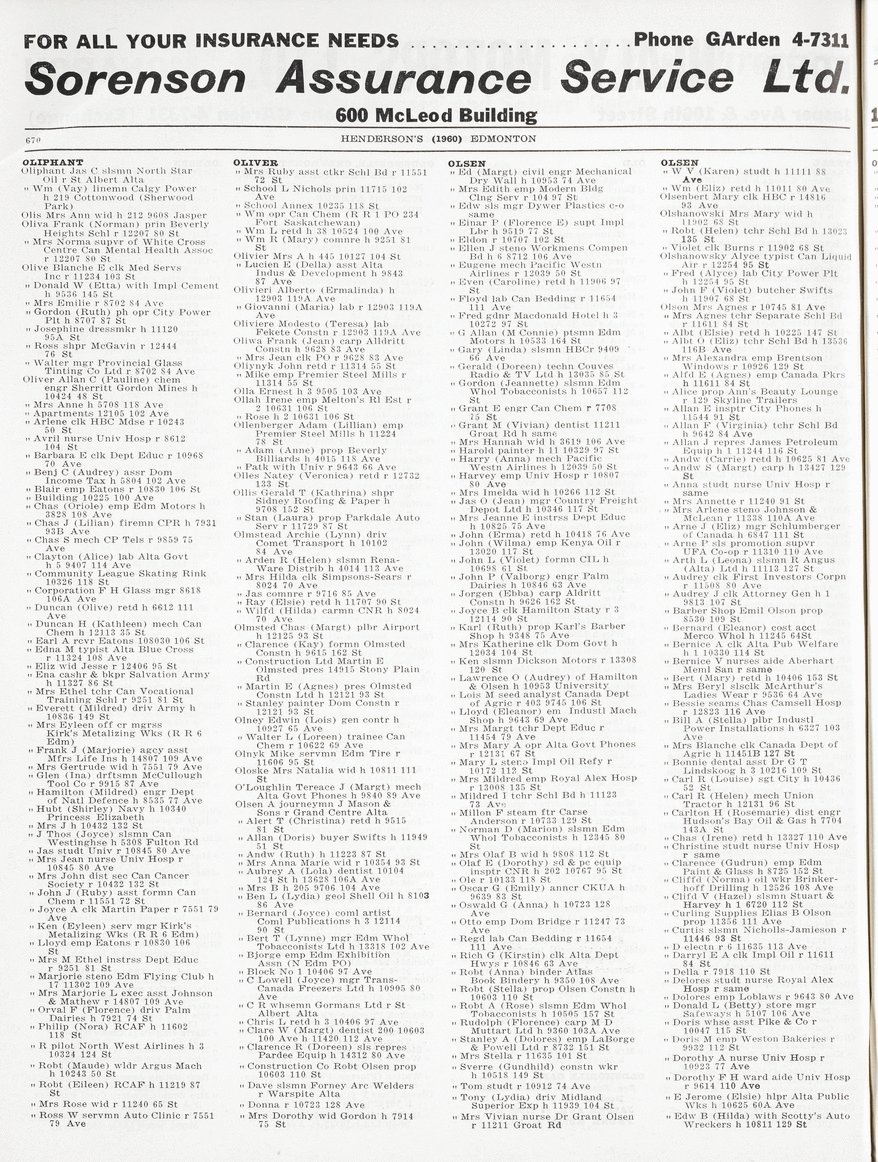 FOR ALL YOUR INSURANCE NEEDS . . . . . . . . . . . . . . . . . . . . . Phone GArden 4-7311
Sorenson Assurance Service Ltd.
600 McLeod Building
670
HENDERSON'S (1960) EDMONTON
OLIPHANT
Oliphant Jas C slsmn North Star
Oil r St Albert Alta
" Wm (Vay) linemn Calgy Power
h 219 Cottonwood (Sherwood
Park)
Olis Mrs Ann wid h 212 9608 Jasper
Oliva Frank (Norman) prin Beverly
Heights Schl r 12207 80 St
" Mrs Norma supvr of White Cross
Centre Can Mental Health Assoc
r 12207 80 St
Olive Blanche E clk Med Servs
Inc r 11234 103 St
" Donald W (Etta) with Impl Cement
h 9536 145 St
" Mrs Emilie r 8702 84 Ave
" Gordon (Ruth) ph opr City Power
Plt h 8707 87 St
" Josephine dressmkr h 11120
95A St
" Ross shpr McGavin r 12444
76 St
" Walter mgr Provincial Glass
Tinting Co Ltd r 8702 84 Ave
Oliver Allan C (Pauline) chem
engr Sherritt Gordon Mines h
10424 48 St
" Mrs Anne h 5708 118 Ave
" Apartments 12105 102 Ave
" Arlene clk HBC Mdse r 10243
50 St
" Avril nurse Univ Hosp r 8612
104 St
" Barbara E clk Dept Educ r 10968
70 Ave
" Benj C (Audrey) assr Dom
Income Tax h 5804 102 Ave
" Blair emp Eatons r 10830 106 St
" Building 10225 100 Ave
" Chas (Oriole) emp Edm Motors h
3828 108 Ave
" Chas J (Lilian) firemn CPR h 7931
93B Ave
" Chas S mech CP Tels r 9859 75
Ave
" Clayton (Alice) lab Alta Govt
h 5 9407 114 Ave
" Community League Skating Rink
10326 118 St
" Corporation F H Glass mgr 8618
106A Ave
" Duncan (Olive) retd h 6612 111
Ave
" Duncan H (Kathleen) mech Can
Chem h 12113 35 St
" Earl A rcvr Eatons 108030 106 St
" Edna M typist Alta Blue Cross
r 11324 108 Ave
" Eliz wid Jesse r 12406 95 St
" Ena cashr & bkpr Salvation Army
h 11327 86 St
" Mrs Ethel tchr Can Vocational
Training Schl r 9251 81 St
" Everett (Mildred) driv Army h
10836 149 St
" Mrs Eyleen off cr mgrss
Kirk's Metalizing Wks (R R 6
Edm)
" Frank J (Marjorie) agcy asst
Mfrs Life Ins h 14807 109 Ave
" Mrs Gertrude wid h 7551 79 Ave
" Glen (Ina) drftsmn McCullough
Tool Co r 9915 87 Ave
" Hamilton (Mildred) engr Dept
of Natl Defence h 8535 77 Ave
" Hubt (Shirley) Navy h 10340
Princess Elizabeth
" Mrs J h 10432 132 St
" J Thos (Joyce) slsmn Can
Westinghse h 5308 Fulton Rd
" Jas studt Univ r 10845 80 Ave
" Mrs Jean nurse Univ Hosp r
10845 80 Ave
" Mrs John dist sec Can Cancer
Society r 10432 132 St
" John J (Ruby) asst formn Can
Chem r 11551 72 St
" Joyce A clk Martin Paper r 7551 79
Ave
" Ken (Eyleen) serv mgr Kirk's
Metalizing Wks (R R 6 Edm)
" Lloyd emp Eatons r 10830 106
St
" Mrs M Ethel instrs Dept Educ
r 9251 81 St
" Marjorie steno Edm Flying Club h
17 11302 109 Ave
" Mrs Marjorie L exec asst Johnson
& Mathew r 14807 109 Ave
" Orval F (Florence) driv Palm
Dairies h 7921 74 St
" Philip (Nora) RCAF h 11602
118 St
" R pilot North West Airlines h 3
10324 124 St
" Robt (Maude) wldr Argus Mach
h 10243 50 St
" Robt (Eileen) RCAF h 11219 87
St
" Mrs Rose wid r 11240 65 St
" Ross W servmn Auto Clinic r 7551
79 Ave
OLIVER
" Mrs Ruby asst ctkr Schl Bd r 11551
72 St
" School L Nichols prin 11715 102
Ave
" School Annex 10235 118 St
" Wm opr Can Chem (R R 1 PO 234
Fort Saskatchewan)
" Wm L retd h 38 10524 100 Ave
" Wm R (Mary) comnre h 9251 81
St
Olivier Mrs A h 445 10127 104 St
" Lucien E (Della) asst Alta
Indus & Development h 9843
87 Ave
Olivieri Alberto (Ermalinda) h
12903 119A Ave
" Giovanni (Maria) lab r 12903 119A
Ave
Oliviere Modesto (Teresa) lab
Fekete Constn r 12903 119A Ave
Oliwa Frank (Jean) carp Alldritt
Constn h 9628 83 Ave
" Mrs Jean clk PO r 9628 83 Ave
Oliynyk John retd r 11314 55 St
" Mike emp Premier Steel Mills r
11314 55 St
Olla Ernest h 3 9505 103 Ave
Ollah Irene emp Melton's Rl Est r
2 10631 106 St
" Rose h 2 10631 106 St
Ollenberger Adam (Lillian) emp
Premier Steel Mills h 11224
78 St
" Adam (Anne) prop Beverly
Billiards h 4015 118 Ave
" Patk with Univ r 9643 66 Ave
Olles Natey (Veronica) retd r 12732
133 St
Ollis Gerald T (Kathrina) shpr
Sidney Roofing & Paper h
9708 152 St
" Stan (Laura) prop Parkdale Auto
Serv r 11729 87 St
Olmstead Archie (Lynn) driv
Comet Transport h 10102
84 Ave
" Arden R (Helen) slsmn Rena-
Ware Distrib h 4014 113 Ave
" Mrs Hilda clk Simpsons-Sears r
8024 70 Ave
" Jas comnre r 9716 85 Ave
" Ray (Elsie) retd h 11707 90 St
" Wilfd (Hilda) carmn CNR h 8024
70 Ave
Olmsted Chas (Margt) plbr Airport
h 12125 93 St
" Clarence (Kay) formn Olmsted
Constn h 9615 162 St
" Construction Ltd Martin E
Olmsted pres 14915 Stony Plain
Rd
" Martin E (Agnes) pres Olmsted
Constn Ltd h 12121 93 St
" Stanley painter Dom Constn r
12121 93 St
Olney Edwin (Lois) gen contr h
10927 65 Ave
" Walter L (Loreen) trainee Can
Chem r 10622 69 Ave
Olnyk Mike servmn Edm Tire r
11606 95 St
Oloske Mrs Natalia wid h 10811 111
St
O'Loughlin Tereace J (Margt) mech
Alta Govt Phones h 9840 89 Ave
Olsen A journeymn J Mason &
Sons r Grand Centre Alta
" Alert T (Christina) retd h 9515
81 St
" Allan (Doris) buyer Swifts h 11949
51 St
" Andw (Ruth) h 11223 87 St
" Mrs Anna Marie wid r 10354 93 St
" Aubrey A (Lola) dentist 10104
124 St h 13628 106A Ave
" Mrs B h 205 9706 104 Ave
" Ben L (Lydia) geol Shell Oil h 8103
86 Ave
" Bernard (Joyce) coml artist
Coml Publications h 3 12114
90 St
" Bert T (Lynne) mgr Edm Whol
Tobacconists Ltd h 13318 102 Ave
" Bjorge emp Edm Exhibition
Assn (N Edm PO)
" Block No 1 10406 97 Ave
" C Lowell (Joyce) mgr Trans-
Canada Freezers Ltd h 10905 80
Ave
" C R whsemn Gormans Ltd r St
Albert Alta
" Chris L retd h 3 10406 97 Ave
" Clare W (Margt) dentist 200 10603
100 Ave h 11420 112 Ave
" Clarence R (Doreen) sls repres
Pardee Equip h 14312 80 Ave
" Construction Co Robt Olsen prop
10603 110 St
" Dave slsmn Forney Arc Welders
r Warspite Alta
" Donna r 10723 128 Ave
" Mrs Dorothy wid Gordon h 7914
75 St
OLSEN
" Ed (Margt) civil engr Mechanical
Dry Wall h 10953 74 Ave
" Mrs Edith emp Modern Bldg
Clng Serv r 104 97 St
" Edw slsmn mgr Dywer Plastics c-o
same
" Einar P (Florence E) supt Impl
Lbr h 9519 77 St
" Eldon r 10707 102 St
" Ellen J steno Workmens Compen
Bd h 6 8712 106 Ave
" Eugene mech Pacific Westn
Airlines r 12039 50 St
" Even (Caroline) retd h 11906 97
St
" Floyd lab Can Bedding r 11654
111 Ave
" Fred gdnr Macdonald Hotel h 3
10272 97 St
" G Allan (M Connie) ptsmn Edm
Motors h 10533 164 St
" Gary (Linda) slsmn HBCr 9409
66 Ave
" Gerald (Doreen) techn Couves
Radio & TV Ltd h 13035 85 St
" Gordon (Jeannette) slsmn Edm
Whol Tobacconists h 10657 112
St
" Grant E engr Can Chem r 7708
75 St
" Grant M (Vivian) dentist 11211
Groat Rd h same
" Mrs Hannah wid h 3619 106 Ave
" Harold painter h 11 10329 97 St
" Harry (Anna) mech Pacific
Westn Airlines h 12039 50 St
" Harvey emp Univ Hosp r 10807
80 Ave
" Mrs Imelda wid h 10266 112 St
" Jas O (Jean) mgr Country Freight
Depot Ltd h 10346 117 St
" Mrs Jeanne E instrss Dept Educ
h 10825 75 Ave
" John (Erma) retd h 10418 76 Ave
" John (Wilma) emp Kenya Oil r
13020 117 St
" John L (Violet) formn CIL h
10698 61 St
" John P (Valborg) engr Palm
Dairies h 10846 63 Ave
" Jorgen (Ebba) carp Aldritt
Constn h 9626 162 St
" Joyce B clk Hamilton Staty r 3
12114 90 St
" Karl (Ruth) prop Karl's Barber
Shop h 9348 75 Ave
" Mrs Katherine clk Dom Govt h
12034 104 St
" Ken slsmn Dickson Motors r 13308
120 St
" Lawrence O (Audrey) of Hamilton
& Olsen h 10953 University
" Lois M seed analyst Canada Dept
of Agric r 403 9745 106 St
" Lloyd (Eleanor) em Industl Mach
Shop h 9643 69 Ave
" Mrs Margt tchr Dept Educ r
11454 79 Ave
" Mrs Mary A opr Alta Govt Phones
r 12131 67 St
" Mary L steno Impl Oil Refy r
10172 112 St
" Mrs Mildred emp Royal Alex Hosp
r 13008 135 St
" Mildred I tchr Schl Bd h 11123
73 Ave
" Millon F steam ftr Carse
Anderson r 10733 129 St
" Norman D (Marion) slsmn Edm
Whol Tobacconists h 12345 80
St
" Mrs Olaf B wid h 9808 112 St
" Olaf E (Dorothy) sd & pc equip
insptr CNR h 202 10767 95 St
" Ole r 10133 118 St
" Oscar G (Emily) anncr CKUA h
9639 83 St
" Oswald G (Anna) h 10723 128
Ave
" Otto emp Dom Bridge r 11247 73
Ave
" Regd lab Can Bedding r 11654
111 Ave
" Rich G (Kirstin) clk Alta Dept
Hwys r 10846 63 Ave
" Robt (Anna) binder Atlas
Book Bindery h 9350 108 Ave
" Robt (Stella) prop Olsen Constn h
10603 110 St
" Robt A (Rose) slsmn Edm Whol
Tobacconists h 10505 157 St
" Rudolph (Florence) carp M D
Muttart Ltd h 9360 103A Ave
" Stanley A (Dolores) emp LaBorge
& Powell Ltd r 8732 151 St
" Mrs Stella r 11635 101 St
" Sverre (Gundhild) constn wkr
h 10518 149 St
" Tom studt r 10912 74 Ave
" Tony (Lydia) driv Midland
Superior Exp h 11939 104 St
" Mrs Vivian nurse Dr Grant Olsen
r 11211 Groat Rd
OLSEN
" W V (Karen) studt h 11111 88
Ave
" Wm (Eliz) retd h 11011 80 Ave
Olsenbert Mary clk HBC r 14816
93 Ave
Olshanowski Mrs Mary wid h
11902 68 St
" Robt (Helen) tchr Schl Bd h 13023
135 St
" Violet clk Burns r 11902 68 St
Olshanowsky Alyce typist Can Liquid
Air r 12254 95 St
" Fred (Alyce) lab City Power Plt
h 12254 95 St
" John F (Violet) butcher Swifts
h 11907 68 St
Olson Mrs Agnes r 10745 81 Ave
" Mrs Agnes tchr Separate Schl Bd
r 11611 84 St
" Albt (Elsie) retd h 10225 147 St
" Albt O (Eliz) tchr Schl Bd h 13536
116B Ave
" Mrs Alexandra emp Brentson
Windows r 10926 129 St
" Alfd E (Agnes) emp Canada Pkrs
h 11611 84 St
" Alice prop Ann's Beauty Lounge
r 129 Skyline Trailers
" Allan E insptr City Phones h
11544 91 St
" Allan F (Virginia) tchr Schl Bd
h 9642 84 Ave
" Allan J repres James Petroleum
Equip h 1 11244 116 St
" Andw (Carrie) retd h 10625 81 Ave
" Andw S (Margt) carp h 13427 129
St
" Anna studt nurse Univ Hosp r
same
" Mrs Annette r 11240 91 St
" Mrs Arlene steno Johnson &
McLean r 11338 110A Ave
" Arne J (Eliz) mgr Schlumberger
of Canada h 6847 111 St
" Arne P sls promotion supvr
UFA Co-op r 11310 110 Ave
" Arth L (Leona) slsmn R Angus
(Alta) Ltd h 11113 127 St
" Audrey clk First Investors Corpn
r 11508 80 Ave
" Audrey J clk Attorney Gen h 1
9813 107 St
" Barber Shop Emil Olson prop
8530 109 St
" Bernard (Eleanor) cost acct
Merco Whol h 11245 64St
" Bernice A clk Alta Pub Welfare
h 1 10330 114 St
" Bernice V nurses aide Aberhart
Meml San r same
" Bert (Mary) retd h 10406 153 St
" Mrs Beryl slsclk McArthur's
Ladies Wear r 9536 64 Ave
" Bessie seams Chas Camsell Hosp
r 12823 116 Ave
" Bill A (Stella) plbr Industl
Power Installations h 6327 103
Ave
" Mrs Blanche clk Canada Dept of
Agric h 11451B 127 St
" Bonnie dental asst Dr G T
Lindskoog h 3 10216 109 St
" Carl R (Louise) sgt City h 10436
52 St
" Carl R (Helen) mech Union
Tractor h 12131 96 St
" Carlton H (Rosemarie) dist engr
Hudson's Bay Oil & Gas h 7704
143A St
" Chas (Irene) retd h 13327 110 Ave
" Christine studt nurse Univ Hosp
r same
" Clarence (Gudrun) emp Edm
Paint & Glass h 8725 152 St
" Cliffd (Norma) oil wkr Brinker-
hoff Drilling h 12526 108 Ave
" Clifd V (Hazel) slsmn Stuart &
Harvey h 1 6720 112 St
" Curling Supplies Elias B Olson
prop 11356 111 Ave
" Curtis slsmn Nicholls-Jamieson r
11446 93 St
" D electn r 6 11635 113 Ave
" Darryl E A clk Impl Oil r 11611
84 St
" Della r 7918 110 St
" Delores studt nurse Royal Alex
Hosp r same
" Dolores emp Loblaws r 9643 80 Ave
" Donald L (Betty) store mgr
Safeways h 5107 106 Ave
" Doris whse asst Pike & Co r
10047 115 St
" Doris M emp Weston Bakeries r
9932 112 St
" Dorothy A nurse Univ Hosp r
10923 77 Ave
" Dorothy F H ward aide Univ Hosp
r 9614 110 Ave
" E Jerome (Elsie) hlpr Alta Public
Wks h 10625 60A Ave
" Edw B (Hilda) with Scotty's Auto
Wreckers h 10811 129 St